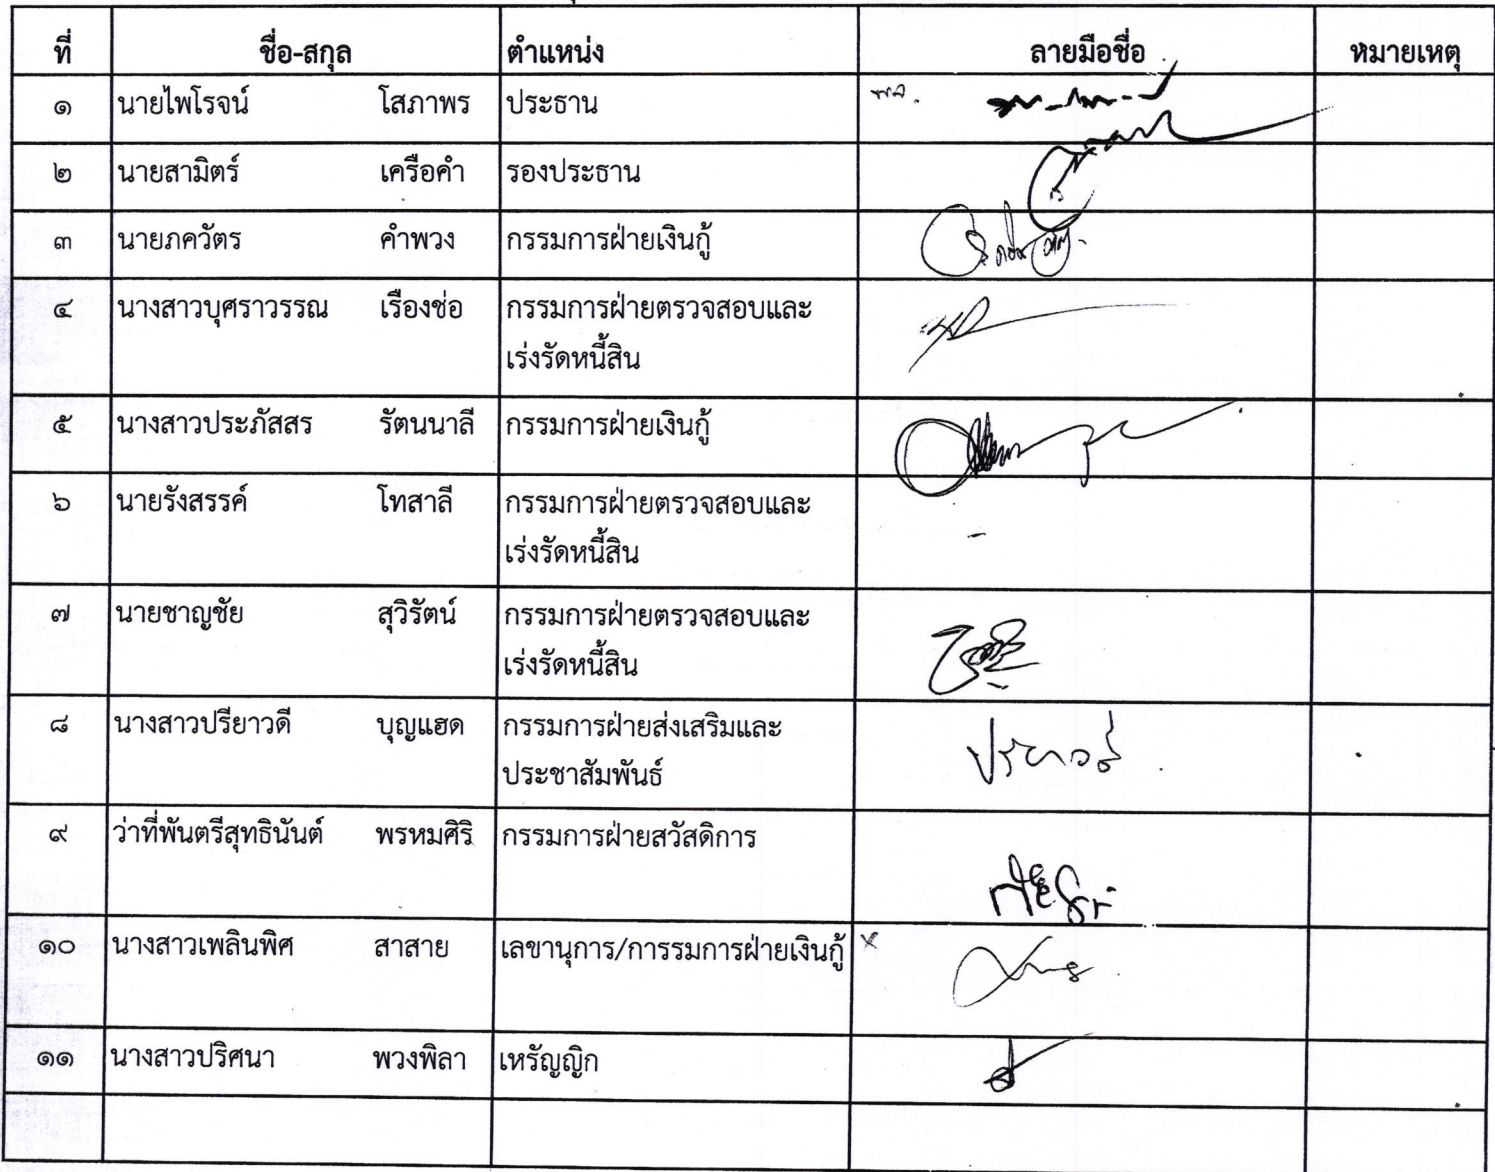 ที่ ชื่อ-สกุล ตำแหน่ง ลายมือชื่อ หมายเหตุ
๑ นายไพโรจน์ โสภาพร ประธาน
๒ นายสามิตร์ เครือคำ รองประธาน
๓ นายภควัตร คำพวง กรรมการฝ่ายเงินกู้
๔ นางสาวบุศราวรรณ เรืองช่อ กรรมการฝ่ายตรวจสอบและ
เร่งรัดหนี้สิน
๕ นางสาวประภัสสร รัตนนาลี กรรมการฝ่ายเงินกู้
๖ นายรังสรรค์ โทสาลี กรรมการฝ่ายตรวจสอบและ
เร่งรัดหนี้สิน -
๗ นายชาญชัย สุวิรัตน์ กรรมการฝ่ายตรวจสอบและ
เร่งรัดหนี้สิน
๘ นางสาวปรียาวดี บุญแฮด กรรมการฝ่ายส่งเสริมและ
ประชาสัมพันธ์
๙ ว่าที่พันตรีสุทธินันต์ พรหมศิริ กรรมการฝ่ายสวัสดิการ
๑๐ นางสาวเพลินพิศ สาสาย เลขานุการ/การรมการฝ่ายเงินกู้ x
๑๑ นางสาวปริศนา พวงพิลา เหรัญญิก